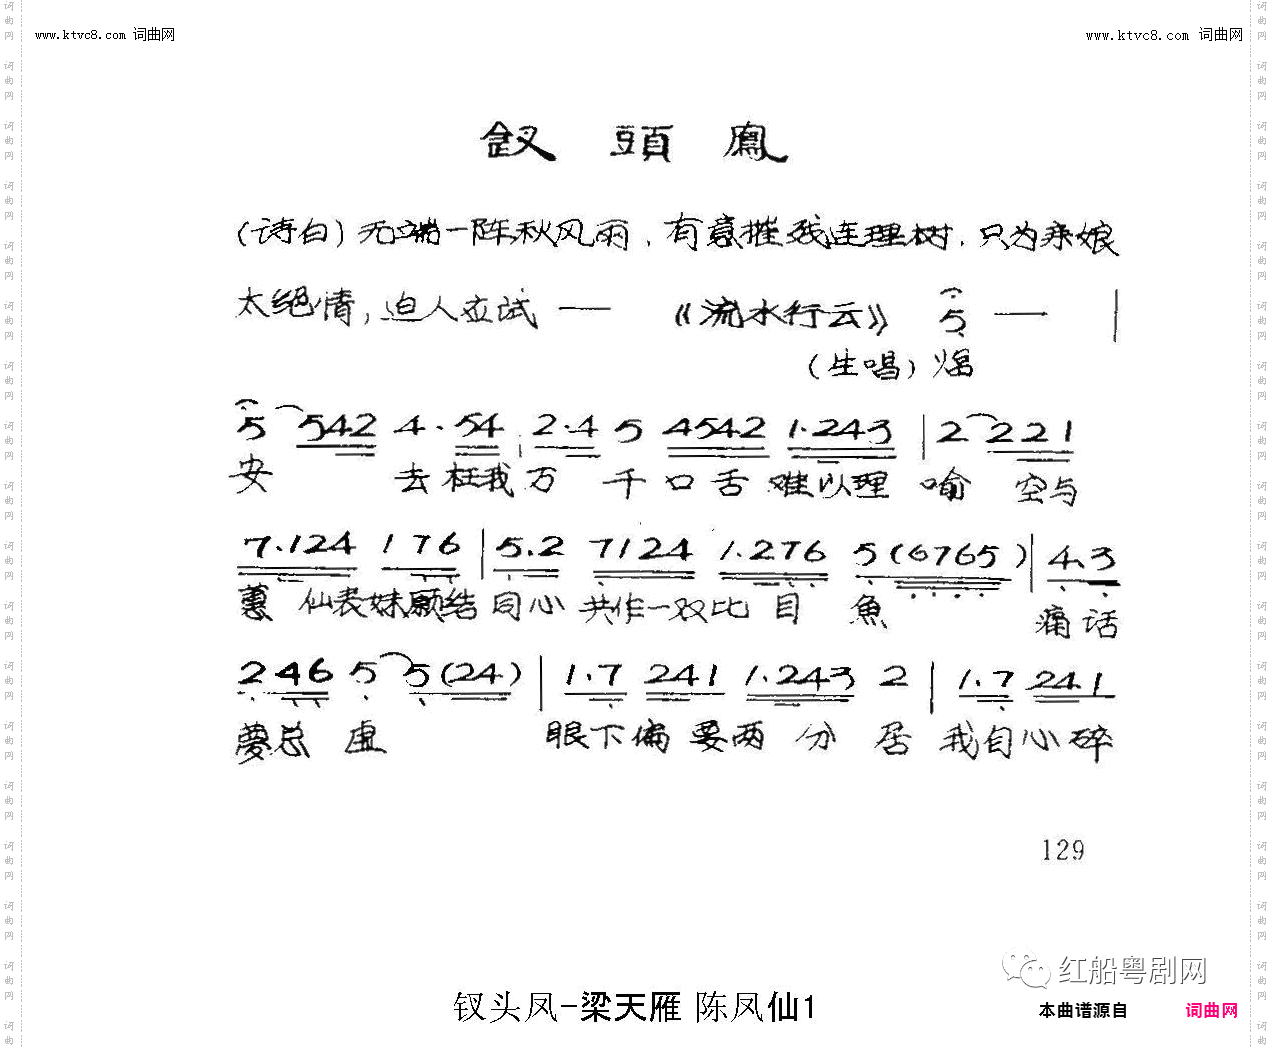 www.ktvc8.com 词曲网 www.ktvc8.com 词曲网
釵頭鳳
(诗白)无端一阵秋风雨,有意摧残连理树,只为亲娘
太绝情,迫人应试 —— 《流水行云》 5 —— |
(生唱)焗
5 542 4·54 2·4 5 4542 1·243 | 2 221
安 去枉我万千口舌难以理喻 空与
7.124 176 | 5.2 7124 1.276 5(6765) | 4.3
蕙仙表妹愿结同心共作一双比目魚 痛话
246 5 5(24) | 1.7 241 1.243 2 | 1.7 24.1
夢总虚 眼下偏要两分居 我自心碎
129
红船粤剧网
钗头凤-梁天雁 陈凤仙1
本曲谱源自 词曲网